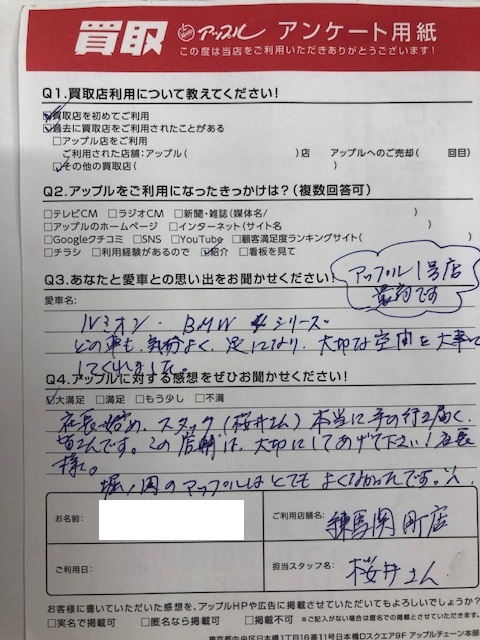 買取 アップル アンケート用紙
この度は当店をご利用いただきありがとうございます!
Q1.買取店利用について教えてください!
☑買取店を初めてご利用
☑過去に買取店をご利用されたことがある
□アップル店をご利用
ご利用された店舗:アップル( )店 アップルへのご売却( 回目)
☑その他の買取店( )
Q2.アップルをご利用になったきっかけは?(複数回答可)
□テレビCM □ラジオCM □新聞・雑誌(媒体名/ )
□アップルのホームページ □インターネット(サイト名 )
□Googleクチコミ □SNS □YouTube □顧客満足度ランキングサイト( )
□チラシ □利用経験があるので ☑紹介 □看板を見て
アップル1号店
最初です
Q3.あなたと愛車との思い出をお聞かせください!
愛車名:
ルミオン・BMW 4シリーズ
どの車も、気分よく、足になり、大切な空間を大事に
してくれました。
Q4.アップルに対する感想をぜひお聞かせください!
☑大満足 □満足 □もう少し □不満
社長始め、スタッフ(桜井さん)本当に手の行き届く、
皆さんです。この店舗は、大切にしてあげて下さい!社長
様。
堀ノ内のアップルはとてもよくなかったです。
お名前:
ご利用店舗名:
練馬関町店
ご利用日:
担当スタッフ名:
桜井さん
お客様に書いていただいた感想を、アップルHPや広告に掲載させていただいてもよろしいでしょうか?
□実名で掲載可 □匿名なら掲載可 □掲載不可 ※ご記入がない場合は匿名での掲載とさせていただきます。
東京都中央区日本橋1丁目16番11号日本橋Dスクエア9F アップルチェーン本部